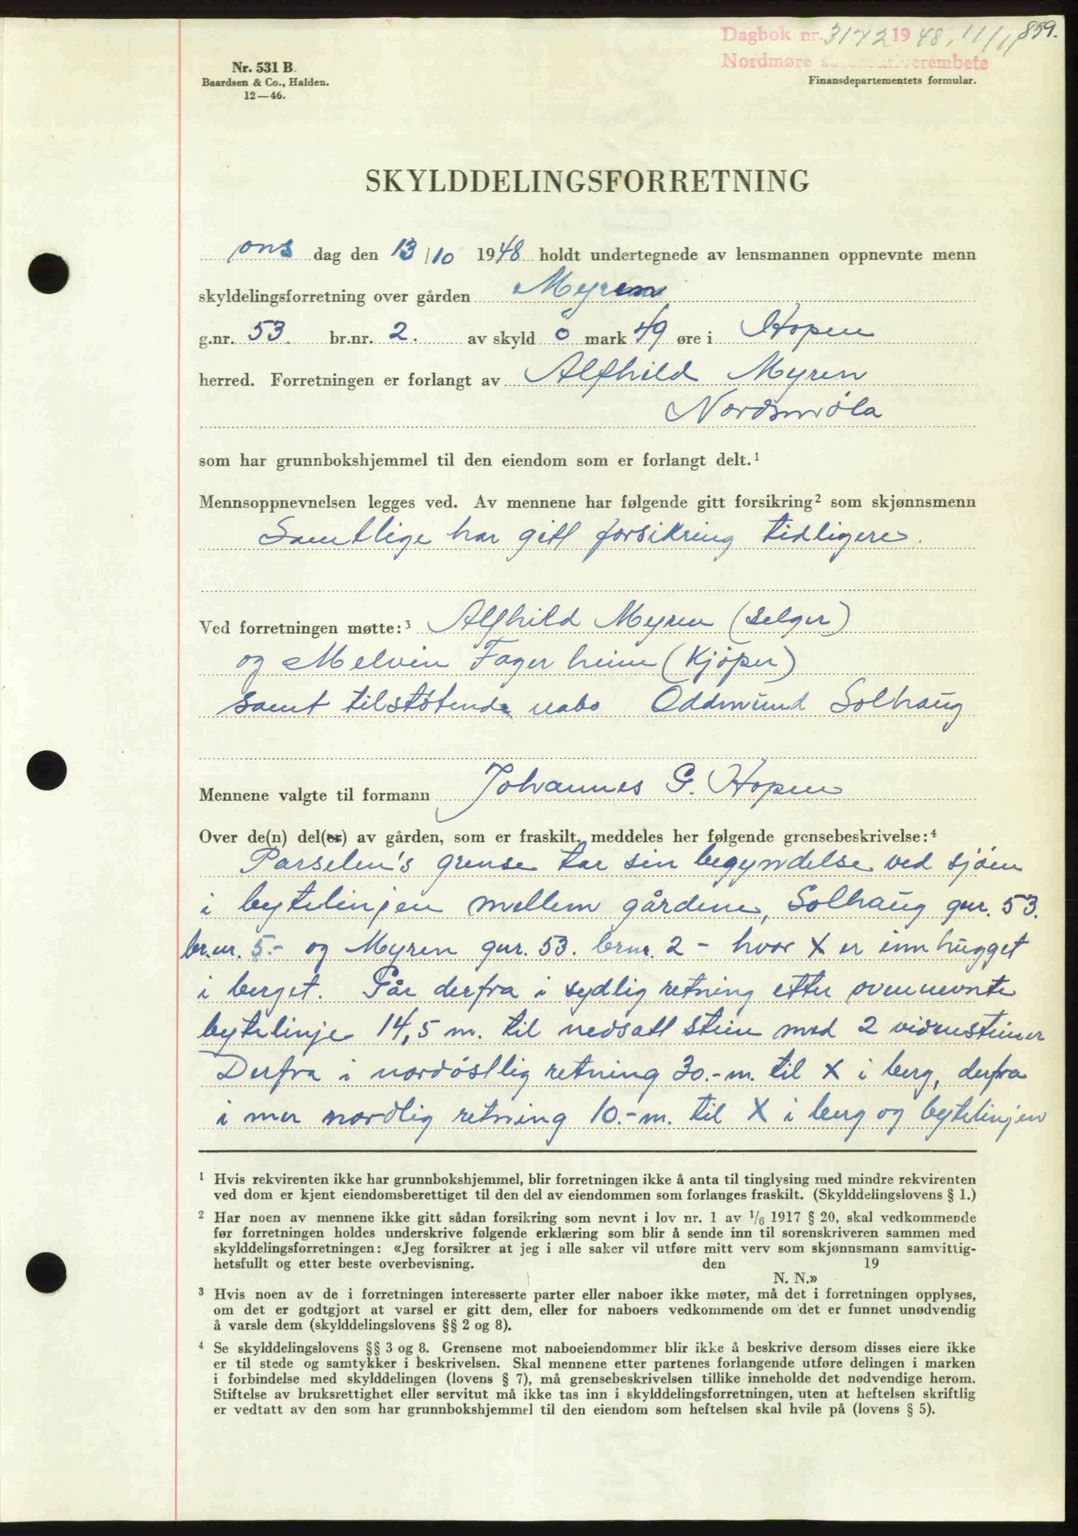 Dagbok nr. 3172 1948, 11/11 859.
Nordmøre sorenskriverembete
Nr. 531 B.
Baardsen & Co., Halden.
12—46.
Finansdepartementets formular.
SKYLDDELINGSFORRETNING
ons dag den 13/10 1948 holdt undertegnede av lensmannen oppnevnte menn
skyldelingsforretning over gården Myren
g.nr. 53. br.nr. 2. av skyld 0 mark 49 øre i Hopen
herred. Forretningen er forlangt av Alfhild Myren
Nordsmøla
som har grunnbokshjemmel til den eiendom som er forlangt delt.¹
Mennsoppnevnelsen legges ved. Av mennene har følgende gitt forsikring² som skjønnsmenn
Samtlige har gitt forsikring tidligere.
Ved forretningen møtte:³ Alfhild Myren (Selger)
og Melvin Fagerheim (Kjøper)
samt tilstøtende nabo Oddmund Solhaug
Mennene valgte til formann Johannes G. Hopen
Over de(n) del(er) av gården, som er fraskilt, meddeles her følgende grensebeskrivelse:⁴
Parselen's grense tar sin begyndelse ved sjøen
i bytelinjen mellem gårdene, Solhaug gnr. 53.
br.nr. 5.- og Myren gnr. 53. brnr. 2 - hvor X er innhugget
i berget. Går derfra i sydlig retning etter ovennevnte
bytelinje 14,5 m. til nedsatt stein med 2 vidnesteiner
Derfra i nordøstlig retning 30.-m. til X i berg, derfra
i mer nordlig retning 10.-m. til X i berg og bytelinjen
¹ Hvis rekvirenten ikke har grunnbokshjemmel, blir forretningen ikke å anta til tinglysing med mindre rekvirenten
ved dom er kjent eiendomsberettiget til den del av eiendommen som forlanges fraskilt. (Skylddelingslovens § 1.)
² Har noen av mennene ikke gitt sådan forsikring som nevnt i lov nr. 1 av 1/6 1917 § 20, skal vedkommende
før forretningen holdes underskrive følgende erklæring som blir å sende inn til sorenskriveren sammen med
skylddelingsforretningen: «Jeg forsikrer at jeg i alle saker vil utføre mitt verv som skjønnsmann samvittig-
hetsfullt og etter beste overbevisning. den 19
N. N.»
³ Hvis noen av de i forretningen interesserte parter eller naboer ikke møter, må det i forretningen opplyses,
om det er godtgjort at varsel er gitt dem, eller for naboers vedkommende om det er funnet unødvendig
å varsle dem (skylddelingslovens §§ 2 og 8).
⁴ Se skylddelingslovens §§ 3 og 8. Grensene mot naboeiendommer blir ikke å beskrive dersom disses eiere ikke
er til stede og samtykker i beskrivelsen. Skal mennene etter partenes forlangende utføre delingen i marken
i forbindelse med skylddelingen (lovens § 7), må grensebeskrivelsen tillike inneholde det nødvendige herom.
Stiftelse av bruksrettighet eller servitut må ikke tas inn i skylddelingsforretningen, uten at heftelsen skriftlig
er vedtatt av den som har grunnbokshjemmel til den eiendom som heftelsen skal hvile på (lovens § 5).